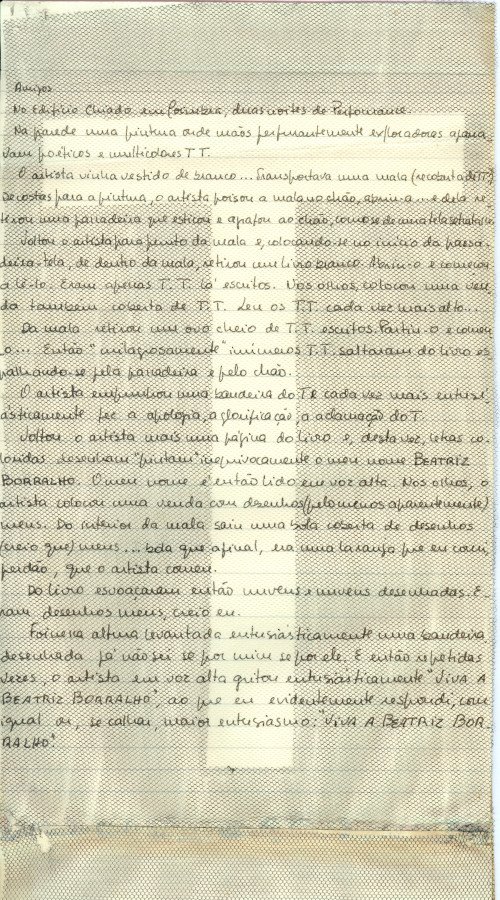 Amigos
No Edifício Chiado, em Coimbra, duas noites de Perfomance.
Na parede uma pintura onde mãos permanentemente exploradoras agana-
vam poéticos e multicolores T.T.
O artista vinha vestido de branco... Transportava uma mala (recoberta de T.T.)
De costas para a pintura, o artista poisou a mala no chão, abriu-a... e dela re-
tirou uma passadeira que esticou e agafou ao chão, como se de uma tela se tratasse.
Voltou o artista para junto da mala e, colocando-se no início da passa-
deira-tela, de dentro da mala, retirou um livro branco. Abriu-o e começou
a lê-lo. Eram apenas T.T. lá escritos. Nos olhos, colocou uma ven-
da também coberta de T.T. Leu os T.T. cada vez mais alto...
Da mala retirou um ovo cheio de T.T. escritos. Partiu-o e comeu-
o... Então "milagrosamente" inúmeros T.T. saltaram do livro es-
palhando-se pela passadeira e pelo chão.
O artista empunhou uma bandeira do T e cada vez mais entusi-
ásticamente fez a apologia, a glorificação, a aclamação do T.
Voltou o artista mais uma página do livro e, desta vez, letras co-
loridas desenham "pintam" inequivocamente o meu nome BEATRIZ
BORRALHO. O meu nome é então lido em voz alta. Nos olhos, o
artista colocou uma venda com desenhos (pelo menos aparentemente)
meus. Do interior da mala saiu uma bola coberta de desenhos
(creio que) meus... bola que afinal, era uma laranja que eu comi,
perdão, que o artista comeu.
Do livro esvoaçaram então nuvens e nuvens desenhadas. E-
ram desenhos meus, creio eu.
Foi nessa altura levantada entusiásticamente uma bandeira,
desenhada já não sei se por mim se por ele. E então repetidas
vezes, o artista em voz alta gritou entusiásticamente "VIVA A
BEATRIZ BORRALHO", ao que eu evidentemente respondi, com
igual ou, se calhar, maior entusiasmo: "VIVA A BEATRIZ BOR-
RALHO".